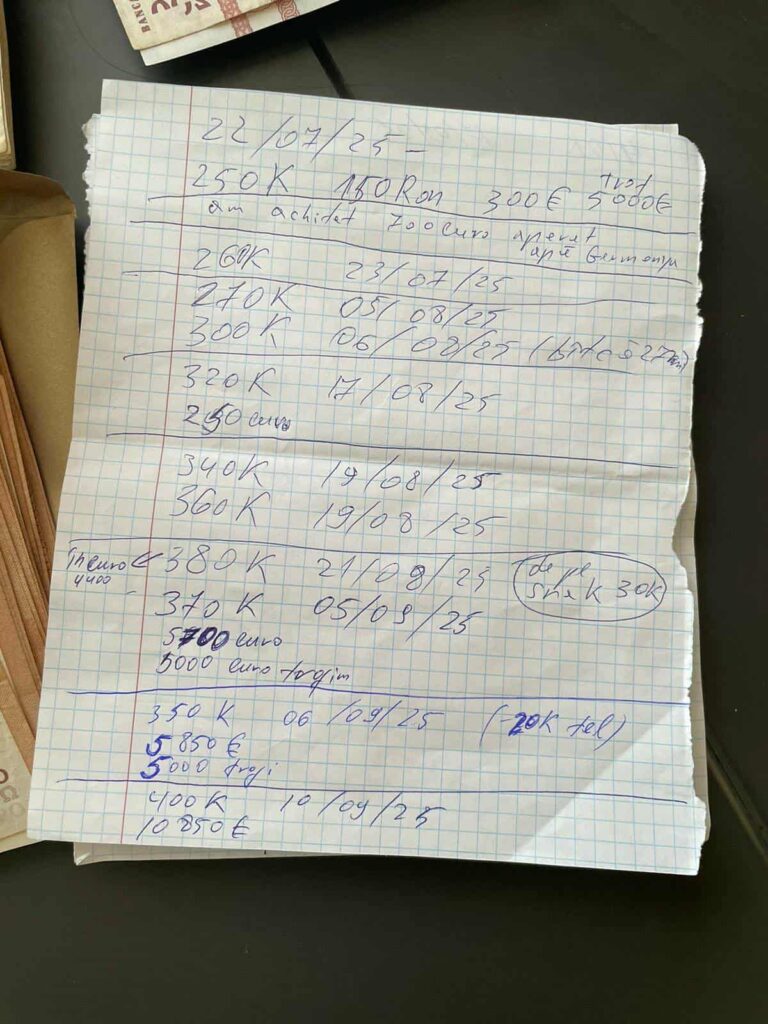 BANC
22/07/25 -
250K 150Ron 300€ 5000€
am achitat 700 euro aperat
apă Germania
260K 23/07/25
270K 05/08/25
300K 06/08/25
320K 17/08/25
250 euro
340K 19/08/25
360K 19/08/25
380K 21/08/25
de pe
30K
euro
4400
370K 05/09/25
5700 euro
5000 euro
350K 06/09/25 (-20K tel)
5850€
5000
400K 10/09/25
10850€